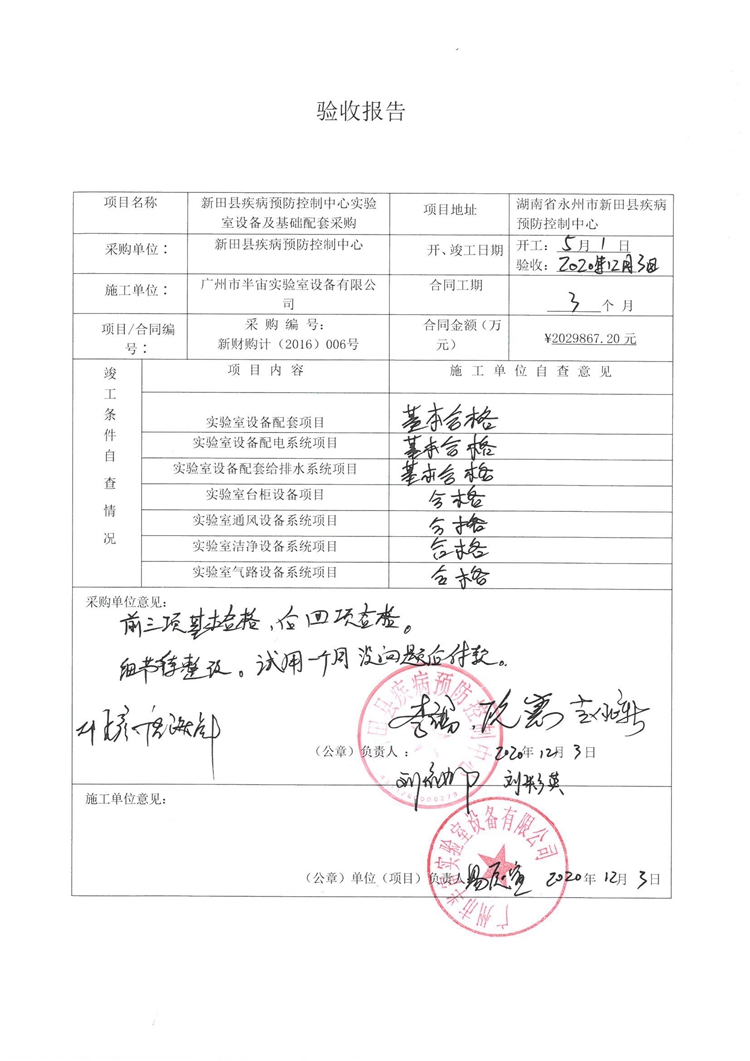 验收报告
项目名称
新田县疾病预防控制中心实验
室设备及基础配套采购
项目地址
湖南省永州市新田县疾病
预防控制中心
采购单位：
新田县疾病预防控制中心
开、竣工日期
开工：5月1日
验收：2020年12月3日
施工单位：
广州市半宙实验室设备有限公
司
合同工期
3 个 月
项目/合同编
号：
采 购 编 号：
新财购计（2016）006号
合同金额（万
元）
¥2029867.20 元
竣工条件自查情况
项 目 内 容
施 工 单 位 自 查 意 见
实验室设备配套项目
基本合格
实验室设备配电系统项目
基本合格
实验室设备配套给排水系统项目
基本合格
实验室台柜设备项目
合格
实验室通风设备系统项目
合格
实验室洁净设备系统项目
合格
实验室气路设备系统项目
合格
采购单位意见：
前三项基本合格，后四项合格。
细节待整改。试用一个月没问题后付款。
田县疾病预防控制中心
（公章）负责人：
2020年12月3日
刘彩英
施工单位意见：
广州市半宙实验室设备有限公司
（公章）单位（项目）负责人
2020年12月3日